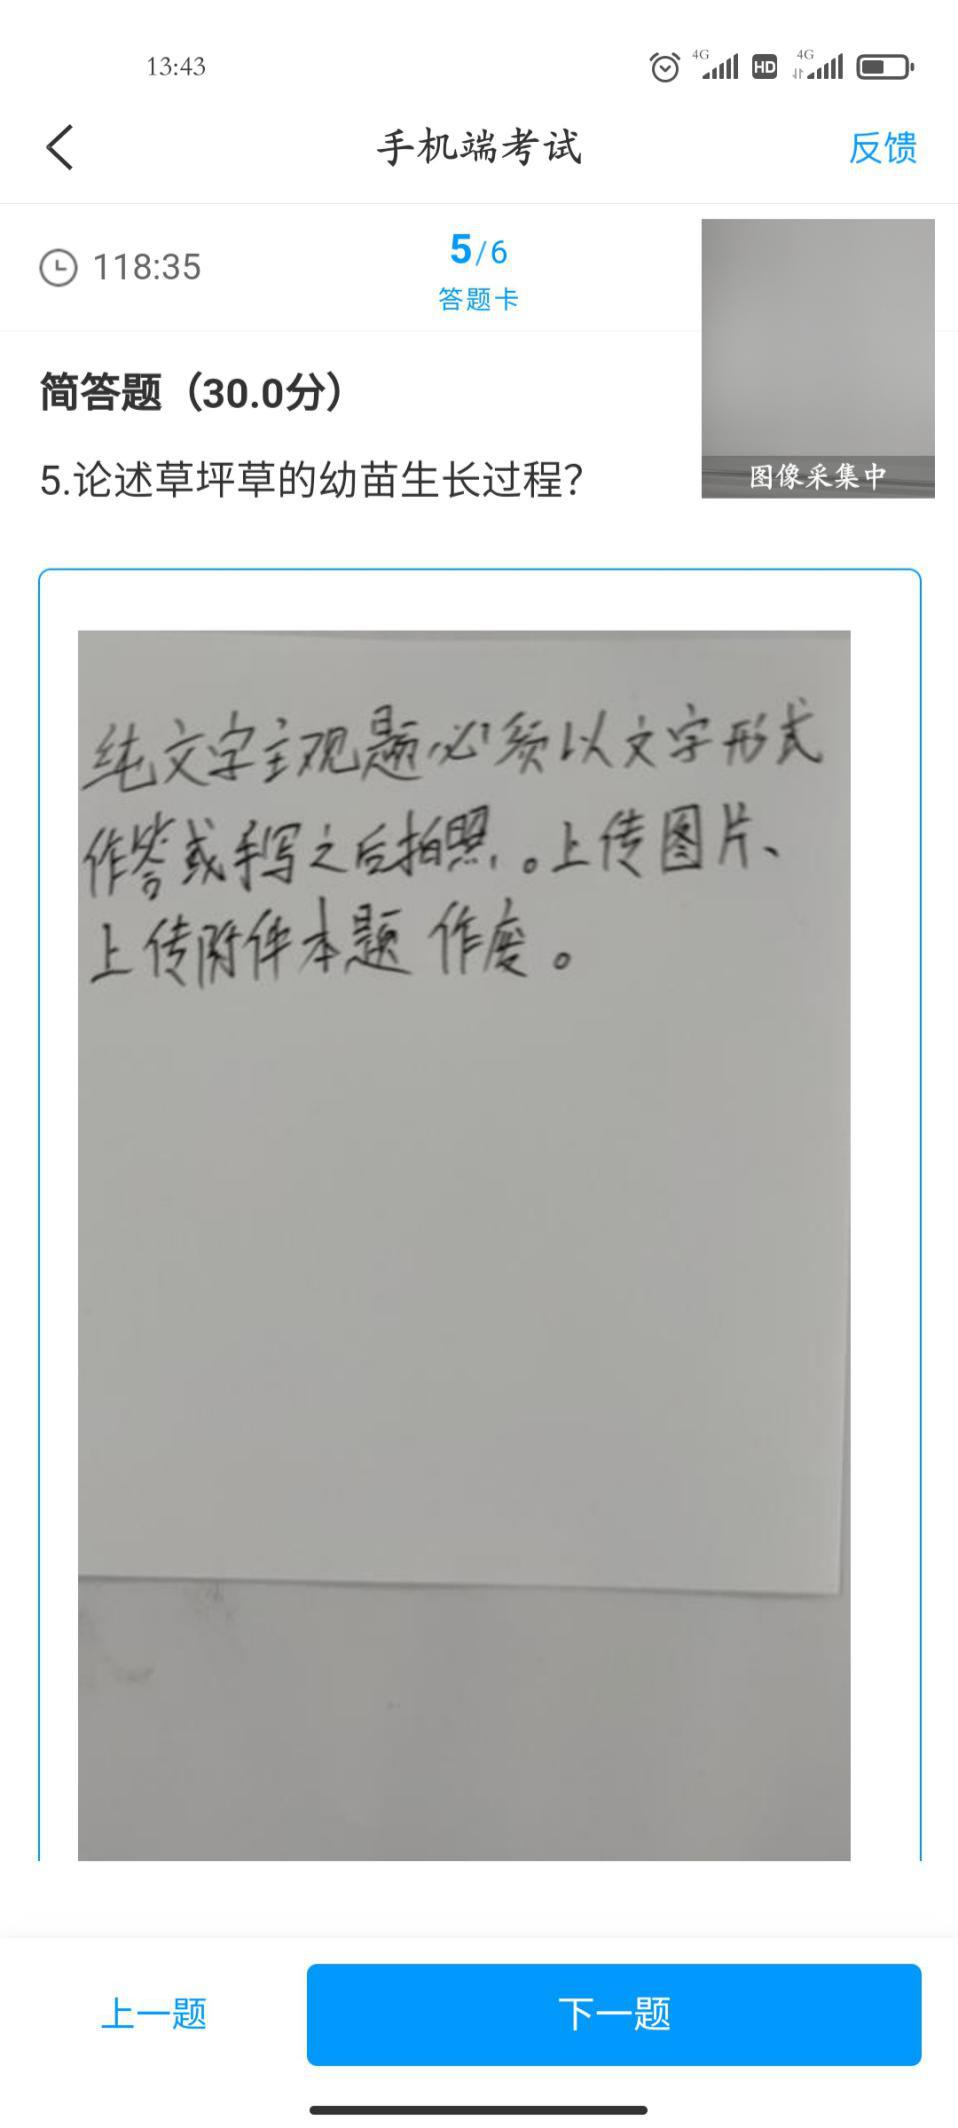 13:43
4G HD 4G
手机端考试
反馈
118:35
5/6
答题卡
简答题（30.0分）
5.论述草坪草的幼苗生长过程？
图像采集中
纯文字主观题必须以文字形式
作答或手写之后拍照。上传图片、
上传附件本题作废。
上一题
下一题